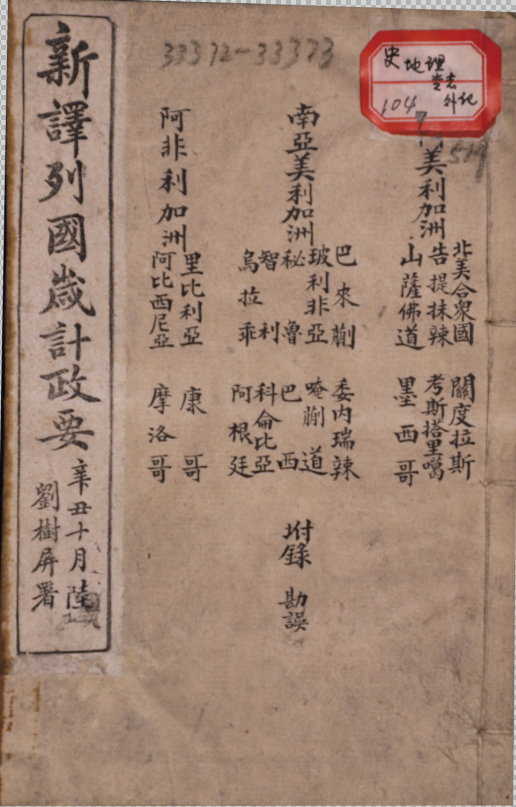 33372-33373
史地理
壹志
外紀
104
519
美利加洲
北美合衆國 關度拉斯
告提抹辣 考斯塔里噶
山薩佛道 墨西哥
南亞美利加洲
巴來蒯 委内瑞辣
玻利非亞 唵蒯道
秘魯 巴西
智利 科侖比亞
烏拉乖 阿根廷
坿錄 勘誤
阿非利加洲
里比利亞 康哥
阿比西尼亞 摩洛哥
新譯列國歲計政要
辛丑十月陸
劉樹屏署